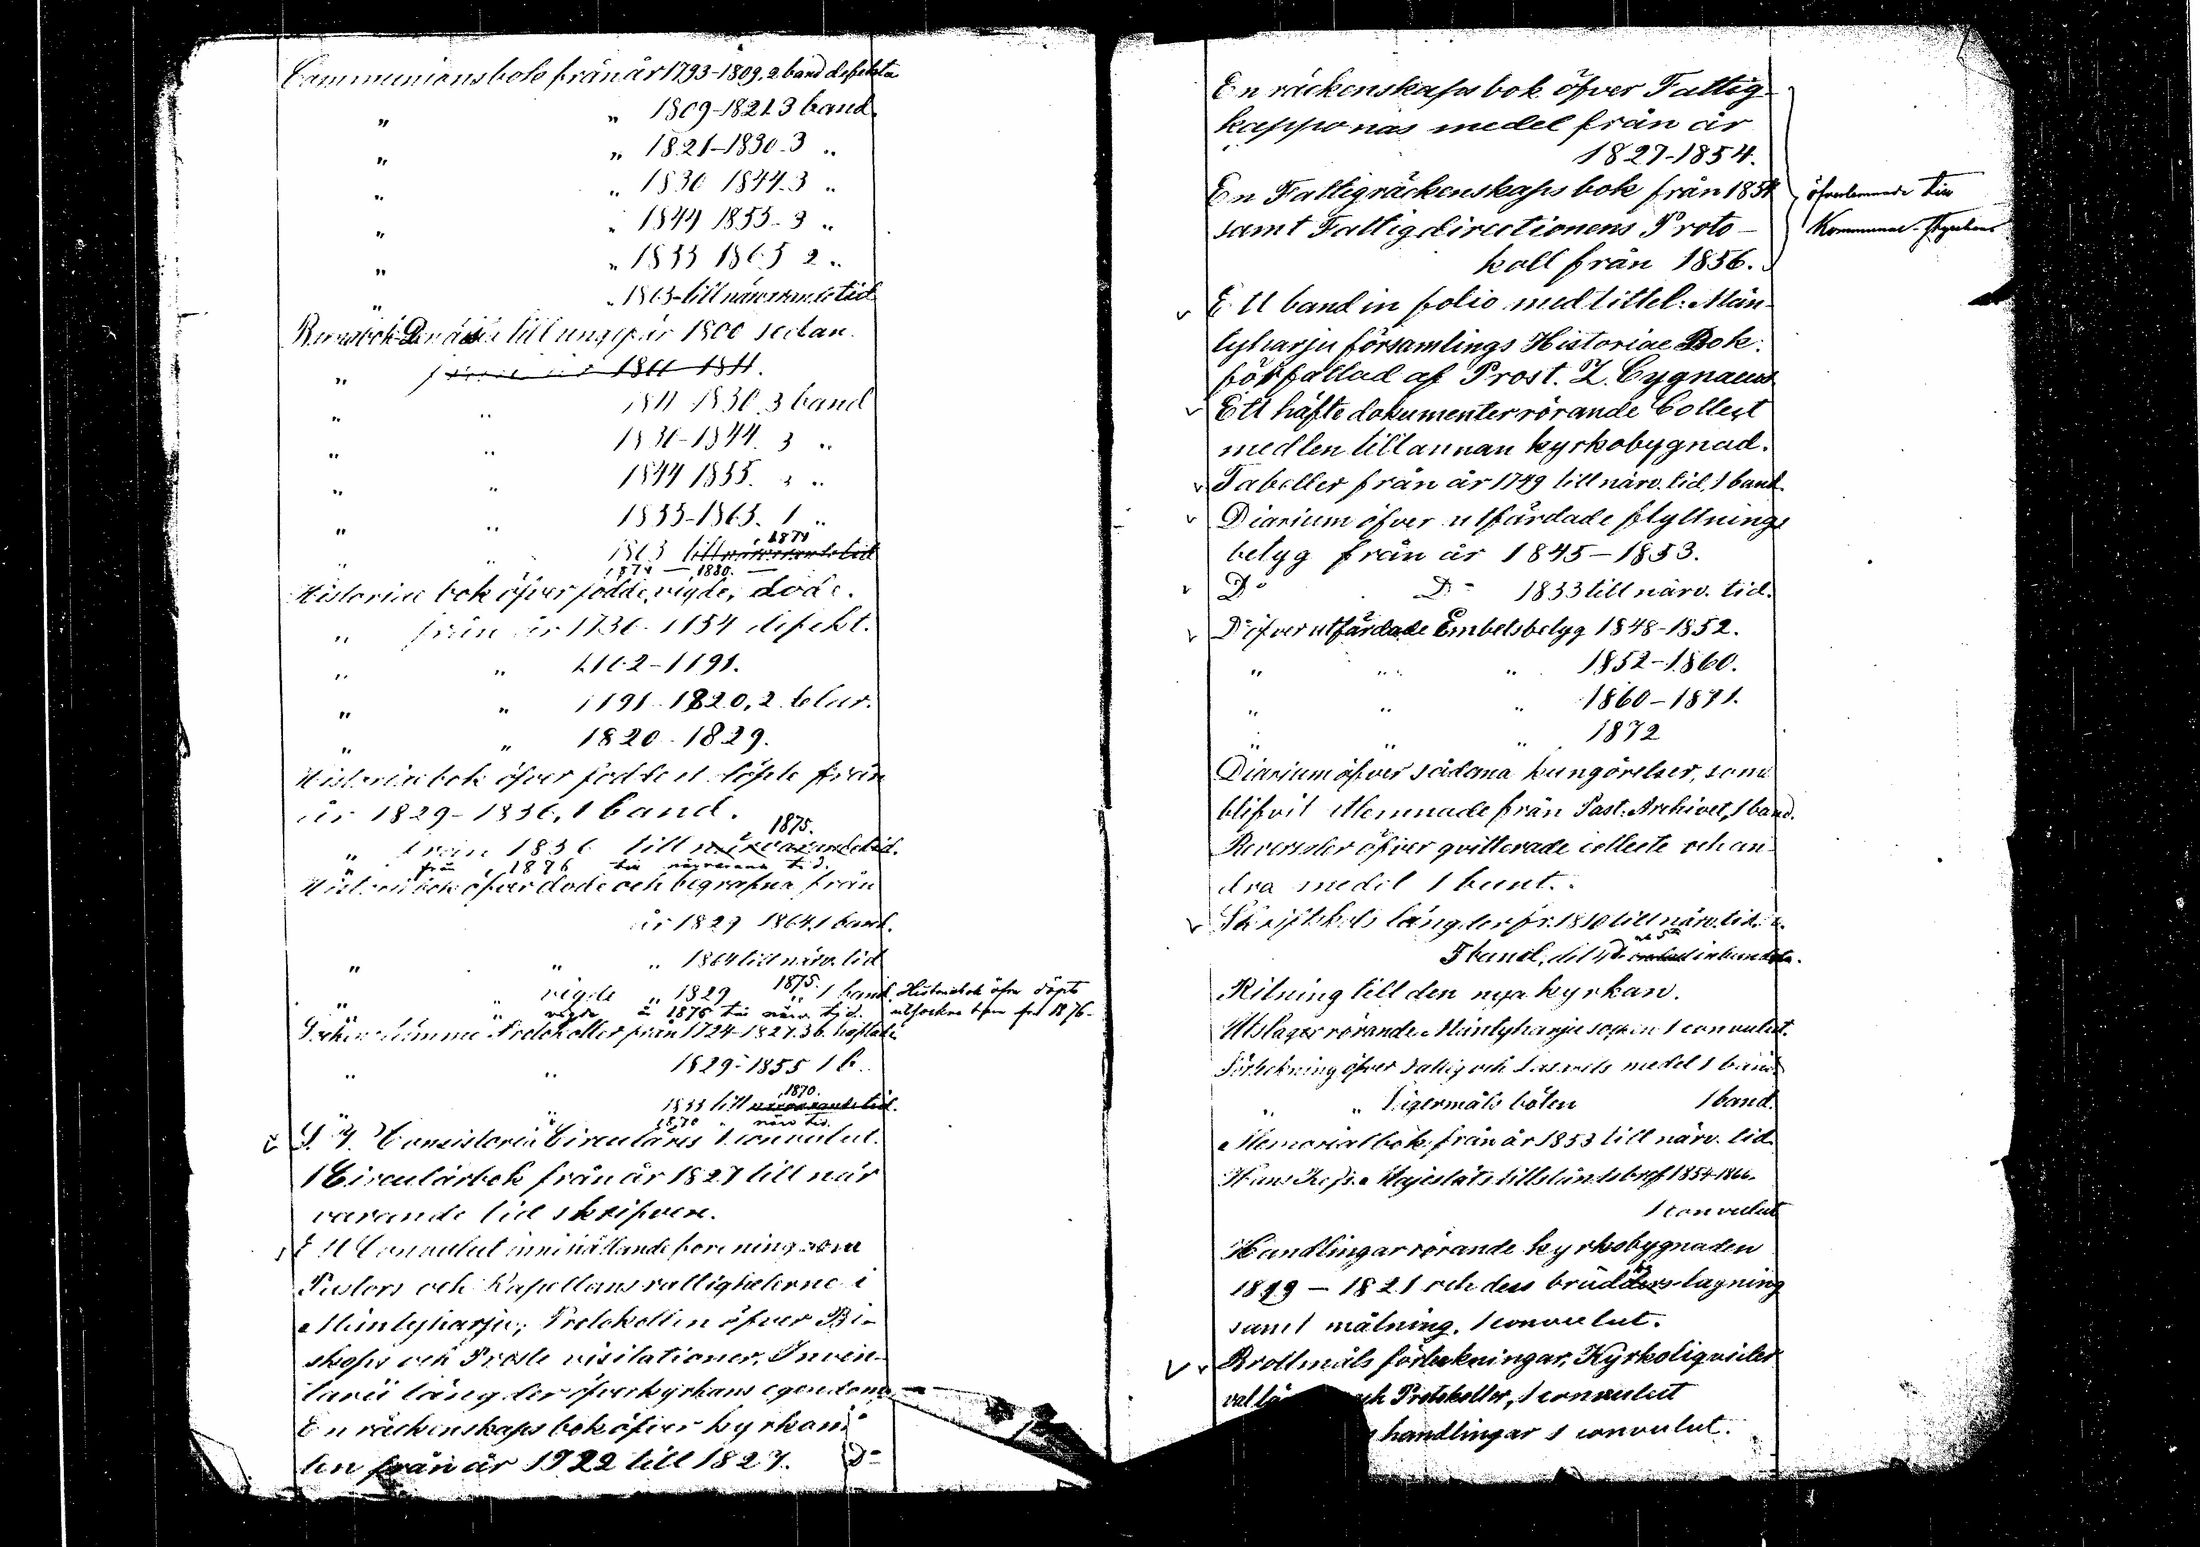 Communionsbok från år 1793-1809. 2. band defekta
" " 1809-1821 3 band.
" " 1821-1830-3 "
" " 1830 1844.3 "
" " 1844 1855-3 "
" " 1855 1865 2 "
" " 1865-till närvarande tid
till ungefär 1800 sedan.
" 1811.
" " 1811 1830 3 band
" " 1830-1844. 3 "
" " 1844 1855. 3 "
" " 1855-1865. 1 "
1874
" " 1865 till närvarande tid
1874 — 1880. —
Historiæ bok öfver födde, vigde, döde.
" från år 1730-1754 defekt.
" " 1762-1791.
" " 1791-1820, 2. blar.
" " 1820-1829.
Historiæ bok öfver födde och döpte från
år 1829-1836, 1 band.
1875.
" från 1836 till närvarande tid.
" från 1876 till närvarande tid.
Historiæ bok öfver döde och begrafne från
år 1829 1864.1 band.
" " " 1864 till närv. tid
" " vigde " 1829 1875. " 1 band. Historiebok öfver döpte
" vigde " 1876 till närv. tid.
Sockenstämmo Protokoller från 1724-1827.3 b. häftade
" " 1829-1855 1 b.
1870.
" " 1855 till närvarande tid.
1870 " närv tid.
Consistorii Circulärer 1 convulut.
1 Circulärbok från år 1827 till när
varande tid skrifven.
Ett Convulut innehållande förening om
Pastors och Kapellans rättigheterne i
Mäntyharju; Protokollen öfver Bi-
skops och Prosta visitationer, Inven-
tarii längder öfver kyrkans egendom
En räckenskaps bok öfver kyrkans
från år 1722 till 1827. Do
En räckenskaps bok öfver Fattig-
kapponas medel från år
1827-1854.
En Fattigräckenskaps bok från 1854
samt Fattigdirectionens Proto-
koll från 1856.
öfverlemnade till
Kommunal-styrelsen
Ett band in folio med tittel: Män-
tyharju församlings Historiae Bok.
författad af Prost. Z. Cygnaeus
Ett häfte dokumenter rörande Collect
medlen till annan kyrkobygnad.
Tabeller från år 1749 till närv. tid, 1 band.
Diarium öfver utfärdade flyttnings
betyg från år 1845-1853.
Do Do 1853 till närv. tid.
Do öfver utfärdade Embetsbetyg 1848-1852.
" " " 1852-1860.
" " " 1860-1871.
" " " 1872
Diarium öfver sådana kungörelser, som
blifvit utlemnade från Past: Archivet, 1 band.
Reverseler öfver qvitterade collecte och an-
dra medel 1 bunt.
Skriftskols längder fr. 1810 till närv. tid.
5 band,
Ritning till den nya kyrkan.
Utslager rörande Mäntyharju socken 1 convulut.
Förteckning öfver Fattig och Lasaretts medel 1 band
" " Lägermåls böten 1 band.
Memorialbok från år 1853 till närv. tid.
Hans Kejs. Majestäts tillståndsbref 1854-1866.
1 convulut
Handlingar rörande kyrkobygnaden
1819 - 1821 och dess brädd slagning
samt målning. 1 convulut.
Brottmåls förteckningar, Kyrkoliqvider
och Protokoller, 1 convulut
handlingar 1 convulut.